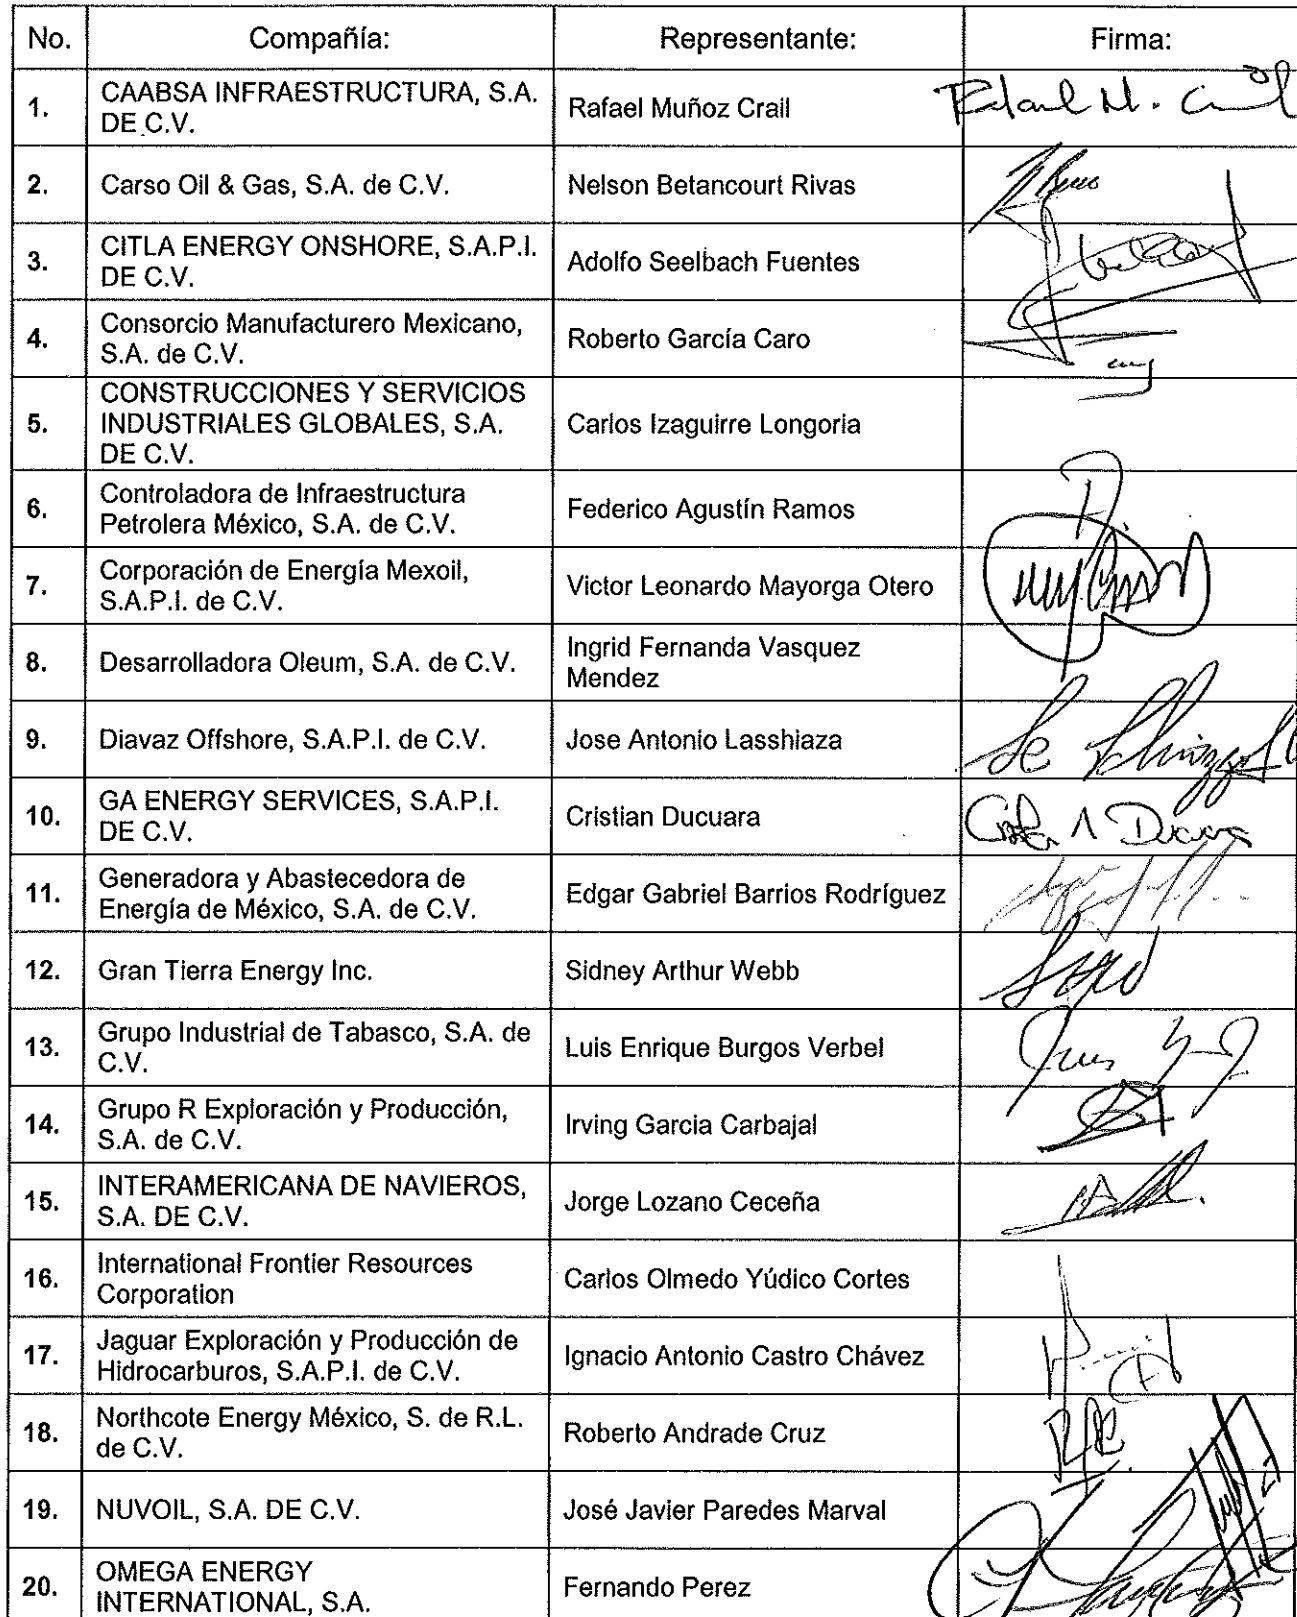 No. Compañía: Representante: Firma:
1. CAABSA INFRAESTRUCTURA, S.A.
DE C.V. Rafael Muñoz Crail
2. Carso Oil & Gas, S.A. de C.V. Nelson Betancourt Rivas
3. CITLA ENERGY ONSHORE, S.A.P.I.
DE C.V. Adolfo Seelbach Fuentes
4. Consorcio Manufacturero Mexicano,
S.A. de C.V. Roberto García Caro
5. CONSTRUCCIONES Y SERVICIOS
INDUSTRIALES GLOBALES, S.A.
DE C.V. Carlos Izaguirre Longoria
6. Controladora de Infraestructura
Petrolera México, S.A. de C.V. Federico Agustín Ramos
7. Corporación de Energía Mexoil,
S.A.P.I. de C.V. Victor Leonardo Mayorga Otero
8. Desarrolladora Oleum, S.A. de C.V. Ingrid Fernanda Vasquez
Mendez
9. Diavaz Offshore, S.A.P.I. de C.V. Jose Antonio Lasshiaza
10. GA ENERGY SERVICES, S.A.P.I.
DE C.V. Cristian Ducuara
11. Generadora y Abastecedora de
Energía de México, S.A. de C.V. Edgar Gabriel Barrios Rodríguez
12. Gran Tierra Energy Inc. Sidney Arthur Webb
13. Grupo Industrial de Tabasco, S.A. de
C.V. Luis Enrique Burgos Verbel
14. Grupo R Exploración y Producción,
S.A. de C.V. Irving Garcia Carbajal
15. INTERAMERICANA DE NAVIEROS,
S.A. DE C.V. Jorge Lozano Ceceña
16. International Frontier Resources
Corporation Carlos Olmedo Yúdico Cortes
17. Jaguar Exploración y Producción de
Hidrocarburos, S.A.P.I. de C.V. Ignacio Antonio Castro Chávez
18. Northcote Energy México, S. de R.L.
de C.V. Roberto Andrade Cruz
19. NUVOIL, S.A. DE C.V. José Javier Paredes Marval
20. OMEGA ENERGY
INTERNATIONAL, S.A. Fernando Perez